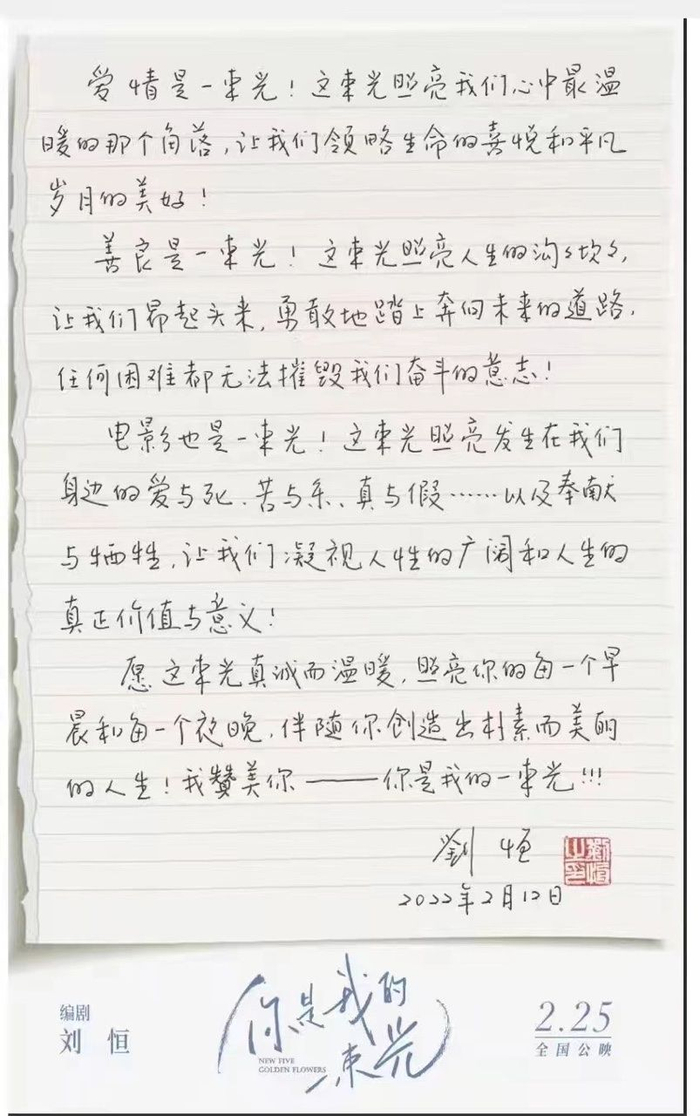 爱情是一束光！这束光照亮我们心中最温
暖的那个角落，让我们领略生命的喜悦和平凡
岁月的美好！
善良是一束光！这束光照亮人生的沟沟坎坎，
让我们昂起头来，勇敢地踏上奔向未来的道路，
任何困难都无法摧毁我们奋斗的意志！
电影也是一束光！这束光照亮发生在我们
身边的爱与死、苦与乐、真与假……以及奉献
与牺牲，让我们凝视人性的广阔和人生的
真正价值与意义！
愿这束光真诚而温暖，照亮你的每一个早
晨和每一个夜晚，伴随你创造出朴素而美丽
的人生！我赞美你——你是我的一束光!!!
劉恒
劉恒之印
2022年2月12日
编剧
刘恒
你是我的一束光
NEW FIVE
GOLDEN FLOWERS
2.25
全国公映